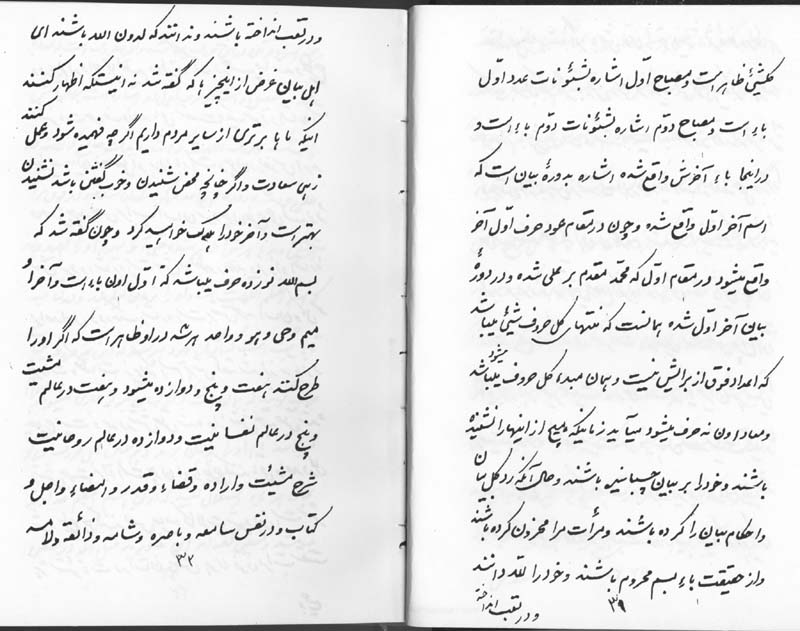 کلشئ ظاهر است و مصباح اول اشاره بشئونات عدد اول
باء است و مصباح دوم اشاره بشئونات دوم باء است و
در اینجا باء آخرش واقع شده اشاره بدورهٔ بیان است که
اسم آخر اول واقع شده و چون در مقام عود حرف اول آخر
واقع میشود در مقام اول که محمد مقدم بر علی شده و در دورهٔ
بیان آخر اول شده بمانست که منتهای کل حروف شیئی میباشد
که اعداد فوق از برایش نیست و همان مبدء کل حروف میباشد
و معاد اون نه حرف میشود میآید زمانیکه هیچ از اینها را نشنیده
باشند و خود را بر بیان چسبانیده باشند و حال آنکه رد کل بیان
و احکام بیان را کرده باشند و مرأت مرا محزون کرده باشند
و از حقیقت باء بسم محروم باشند و خود را لله دانند
و در تعب انداخته
۳۱
و در تعب انداخته باشند و ندانند که لدون الله باشند ای
اهل بیان غرض از اینچیزها که گفته شد نه اینستکه اظهار کنند
اینکه ماها برتری از سایر مردم داریم اگر چه فهمیده شود و عمل کنند
زهی سعادت و اگر چنانچه محض شنیدن و خوب گفتن باشد نشنیدن
بهتر است و آخر خود را هلاک خواهید کرد و چون گفته شد که
بسم الله نوزده حرف میباشد که اول اون باء است و آخر او
میم و حی و هو و واحد هر سه در او ظاهر است که اگر او را
طرح کنند هفت و پنج و دوازده میشود و هفت در عالم مشیت
و پنج در عالم نفسانیت و دوازده در عالم روحانیت
شرح مشیئت و اراده و قضاء و قدر و امضاء و اجل و
کتاب و در نفس سامعه و باصره و شامه و ذائقه و لامسه
۳۲